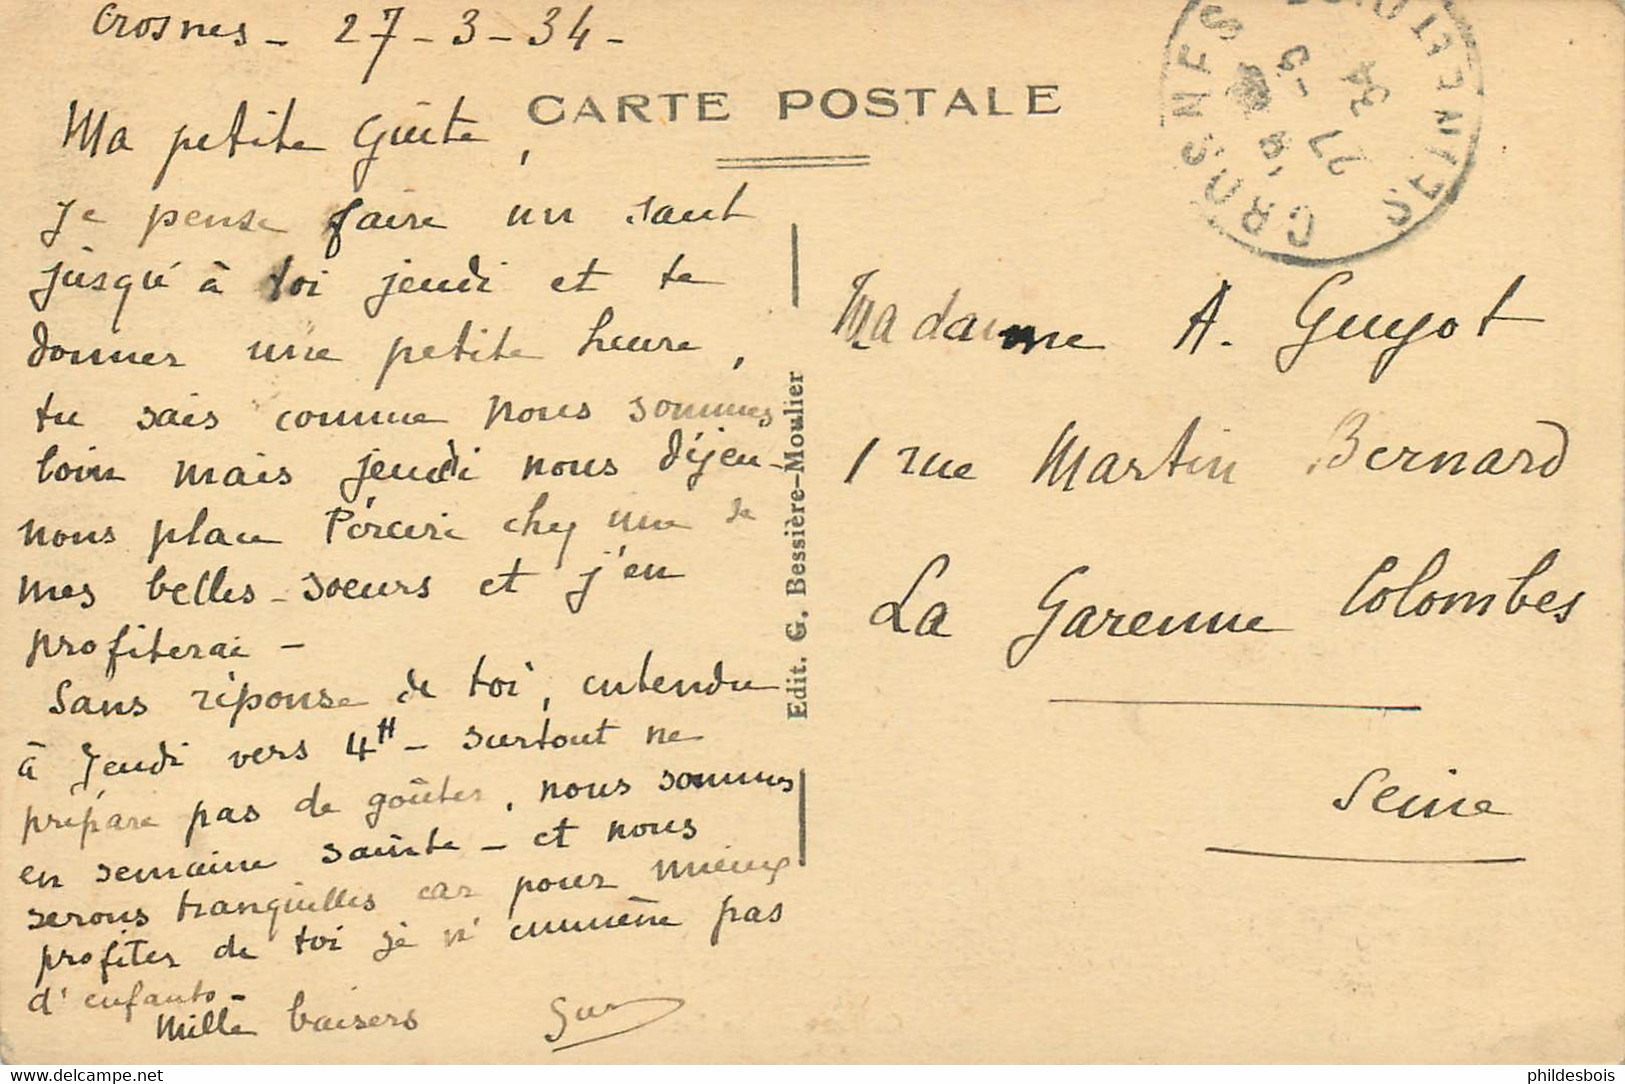 Crosnes - 27-3-34-
CARTE POSTALE
Ma petite Guite,
Je pense faire un saut
jusqu'à toi jeudi et te
donner une petite heure,
tu sais comme nous sommes
loin mais jeudi nous déjeu-
nons place Péreire chez une de
mes belles-soeurs et j'en
profiterai -
Sans réponse de toi, entendu
à Jeudi vers 4H - surtout ne
prépare pas de goûter, nous sommes
en semaine sainte - et nous
serons tranquilles car pour mieux
profiter de toi je n'emmène pas
d'enfants -
Mille baisers
Edit. G. Bessière-Moulier
CROSNES
SEINE ET OISE
27 -3
34
Madame A. Guyot
1 rue Martin Bernard
La Garenne Colombes
Seine
http://www.delcampe.net
phildesbois